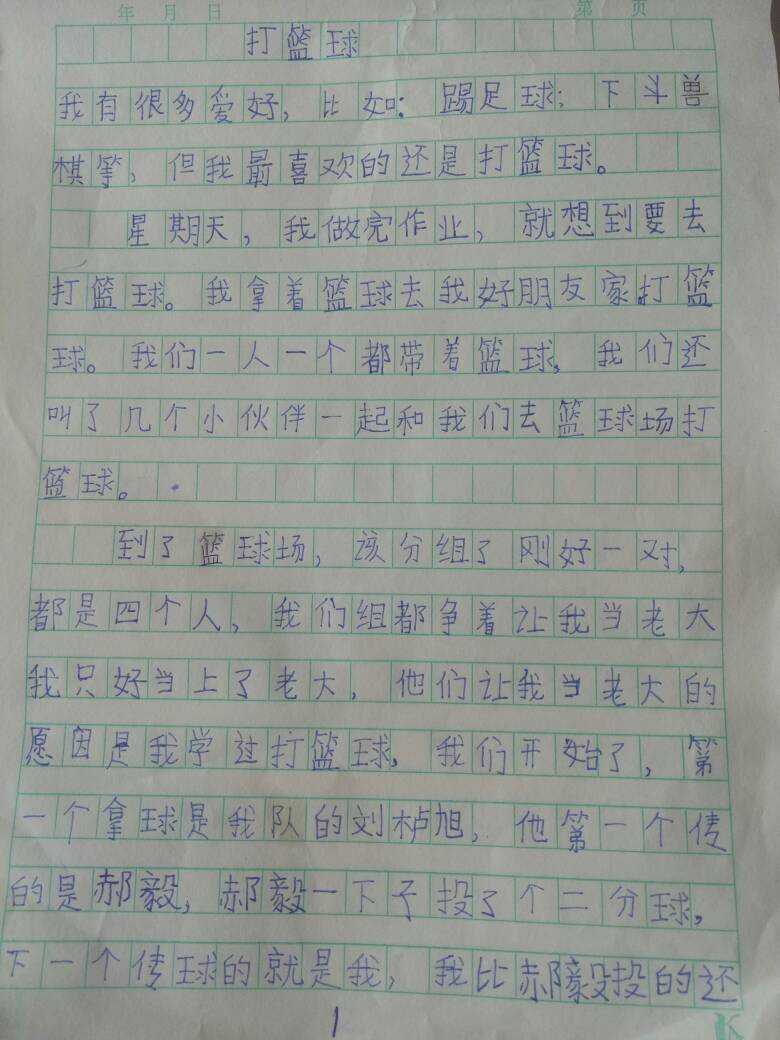 年 月 日 第 页
打篮球
我有很多爱好，比如：踢足球；下斗兽
棋等，但我最喜欢的还是打篮球。
星期天，我做完作业，就想到要去
打篮球。我拿着篮球去我好朋友家打篮
球。我们一人一个都带着篮球，我们还
叫了几个小伙伴一起和我们去篮球场打
篮球。
到了篮球场，该分组了刚好一对，
都是四个人，我们组都争着让我当老大
我只好当上了老大，他们让我当老大的
愿因是我学过打篮球，我们开始了，第
一个拿球是我队的刘栌旭，他第一个传
的是郝毅，郝毅一下子投了个二分球，
下一个传球的就是我，我比郝毅投的还
1